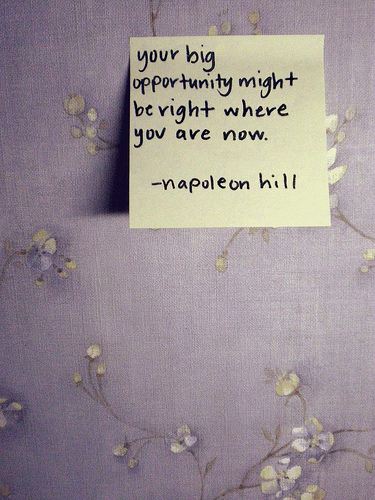 your big
opportunity might
be right where
you are now.
-napoleon hill